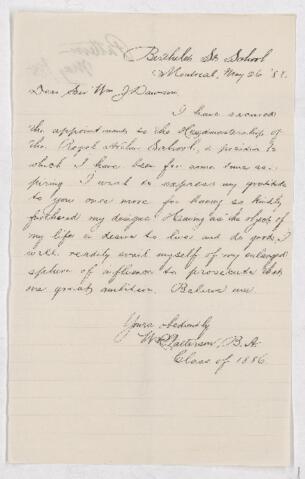 Berthelet St. School
Montreal, May 26 '88.
Dear Sir Wm J Dawson,
I have secured
the appointment to the Headmastership of
the Royal Arthur School, a position to
which I have been for some time as-
piring. I wish to express my gratitude
to you once more for having so kindly
furthered my designs. Having as the object of
my life a desire to live and do good, I
will readily avail myself of my enlarged
sphere of influence to prosecute that
one great ambition. Believe me
Yours obediently
W. P. Patterson, B.A.
Class of 1886.